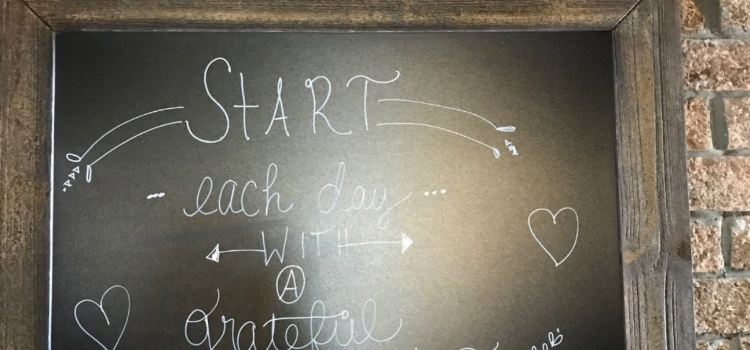 START
each day
WITH
A
grateful